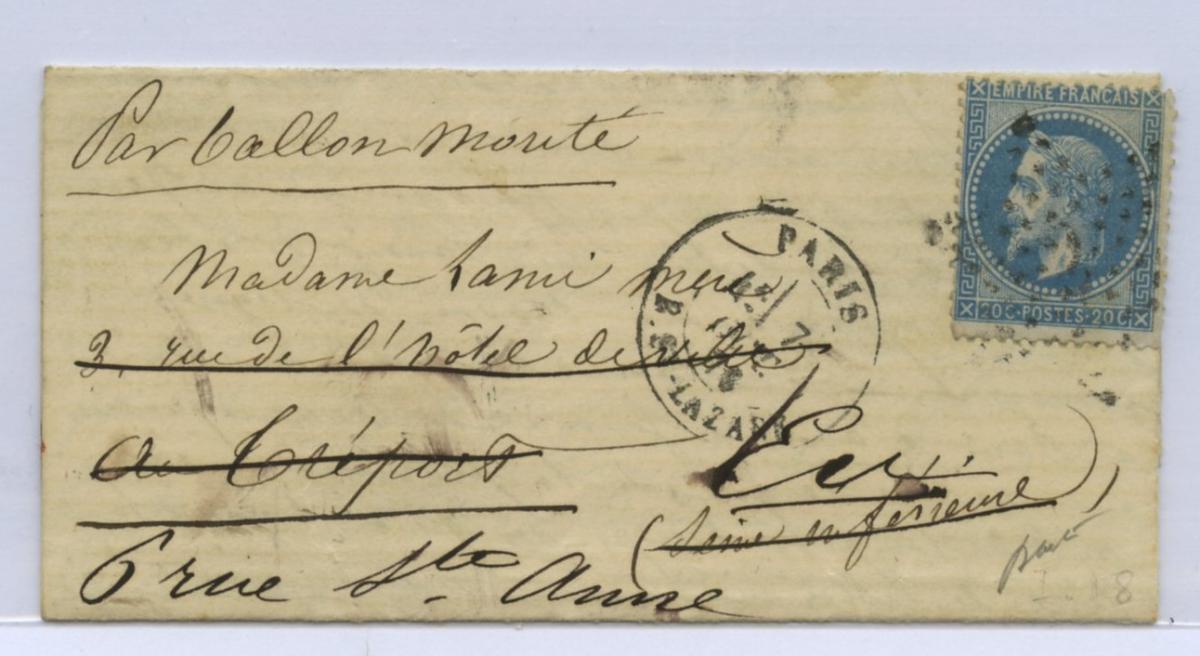 Par ballon monté
EMPIRE FRANÇAIS
20C·POSTES·20C
Madame Lami mère
3, rue de l'hôtel de ville
au Tréport
Eu
(Seine inférieure)
6 rue Ste Anne
PARIS
R. ST-LAZARE
7